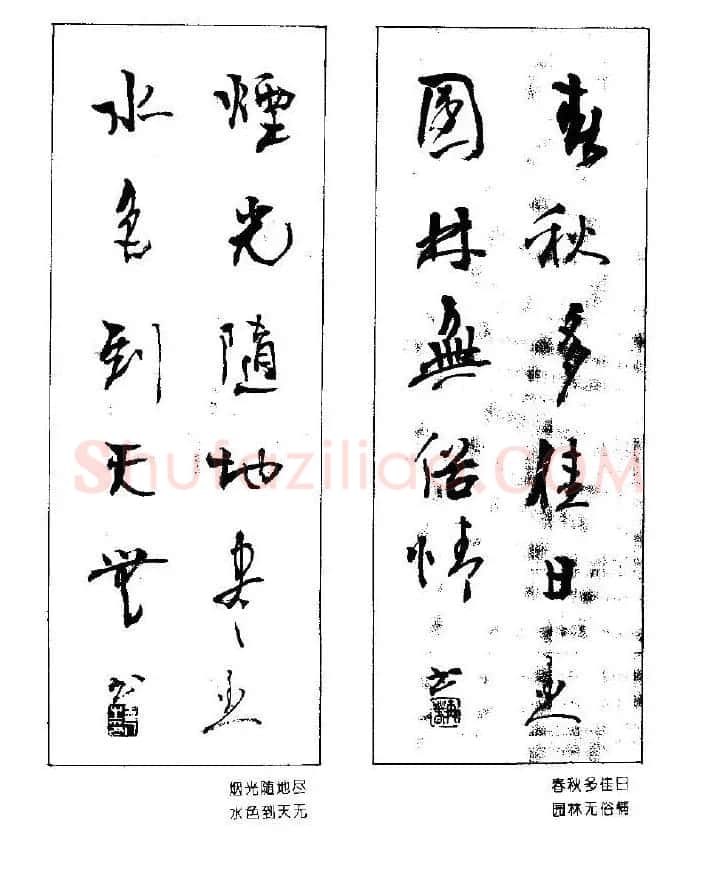 春秋多佳日
園林無俗情
春秋多佳日
园林无俗情
煙光隨地盡
水色到天無
烟光随地尽
水色到天无
Shufaziliao.COM